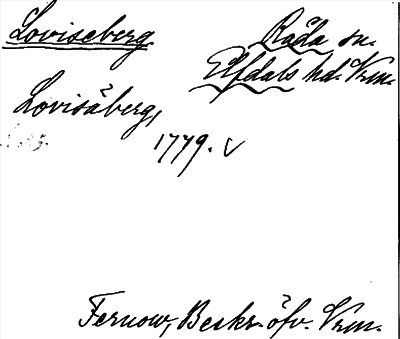 Lowiseberg. Råda sn.
Elfdals hd. Vrm.
Lovisäberg,
1779. V
Fernow, Beskr. öfv. Vrm.